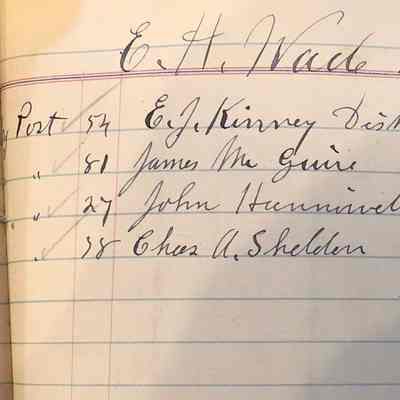 E. H. Wade
Post 54 E. J. Kinney Dist
" 81 James Mc Guire
" 27 John Hunniwel
" 38 Chas A. Sheldon